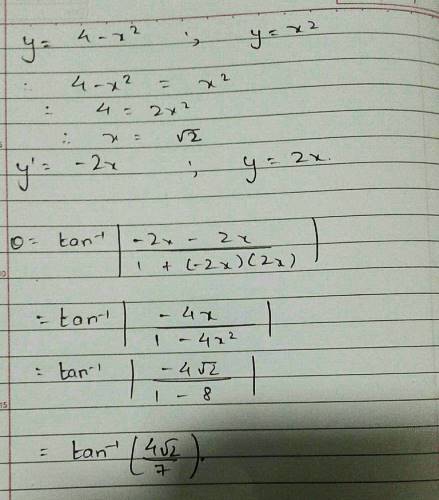 y = 4 - x² ; y = x²
∴ 4 - x² = x²
∴ 4 = 2x²
∴ x = √2
y' = -2x ; y = 2x.
θ = tan⁻¹ | (-2x - 2x) / (1 + (-2x)(2x)) |
= tan⁻¹ | (-4x) / (1 - 4x²) |
= tan⁻¹ | (-4√2) / (1 - 8) |
= tan⁻¹ (4√2 / 7).